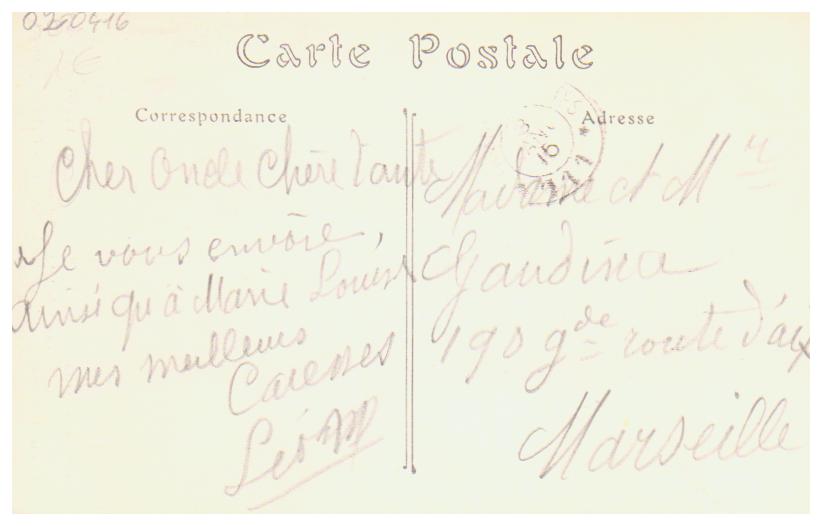 0260416
1€
Carte Postale
Correspondance
Adresse
Cher Oncle Chère Tante
Je vous envoie,
ainsi qu'à Marie Louise
mes meilleures
Caresses
Madame et M r
Gaudina
190 gde route d'aix
Marseille